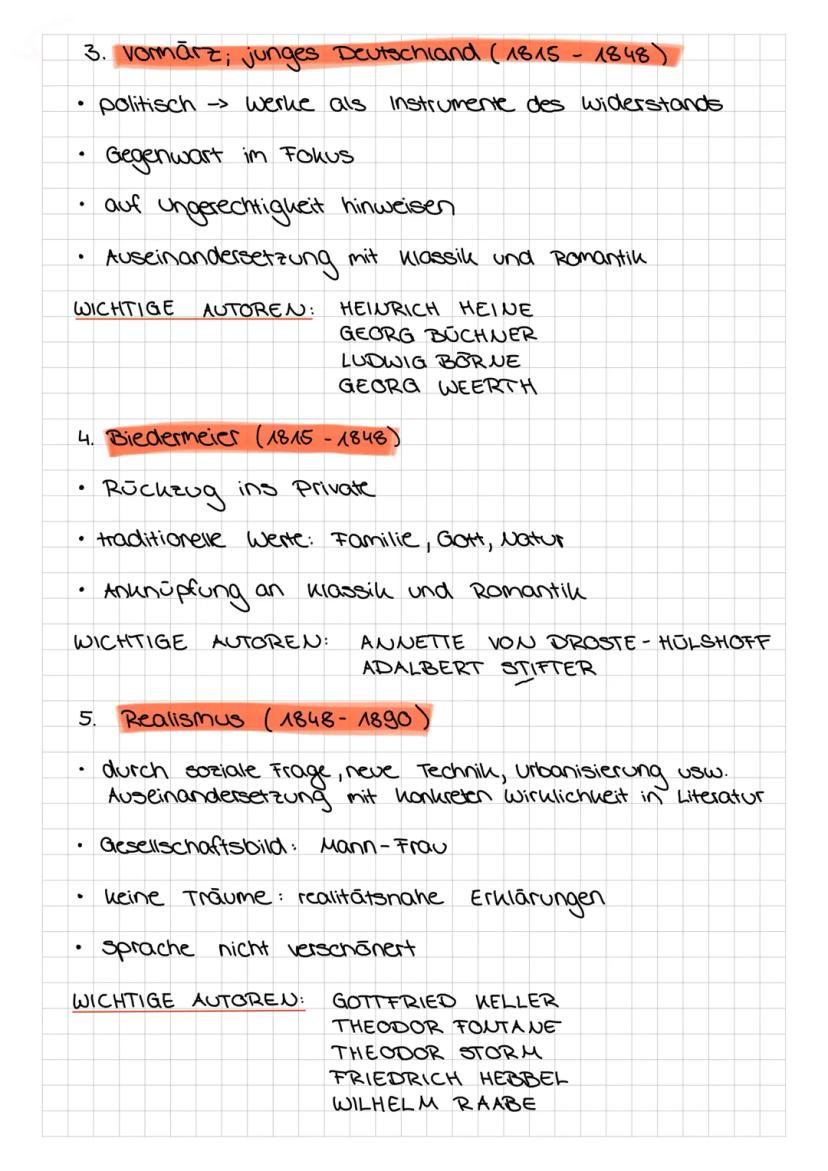 3. Vormärz; junges Deutschland (1815 - 1848)
• politisch -> Werke als Instrumente des Widerstands
• Gegenwart im Fokus
• auf Ungerechtigkeit hinweisen
• Auseinandersetzung mit Klassik und Romantik
WICHTIGE AUTOREN: HEINRICH HEINE
GEORG BÜCHNER
LUDWIG BÖRNE
GEORG WEERTH
4. Biedermeier (1815 - 1848)
• Rückzug ins Private
• traditionelle Werte: Familie, Gott, Natur
• Anknüpfung an Klassik und Romantik
WICHTIGE AUTOREN: ANNETTE VON DROSTE-HÜLSHOFF
ADALBERT STIFTER
5. Realismus (1848 - 1890)
• durch soziale Frage, neue Technik, Urbanisierung usw.
Auseinandersetzung mit konkreten Wirklichkeit in Literatur
• Gesellschaftsbild: Mann-Frau
• keine Träume: realitätsnahe Erklärungen
• Sprache nicht verschönert
WICHTIGE AUTOREN: GOTTFRIED KELLER
THEODOR FONTANE
THEODOR STORM
FRIEDRICH HEBBEL
WILHELM RAABE